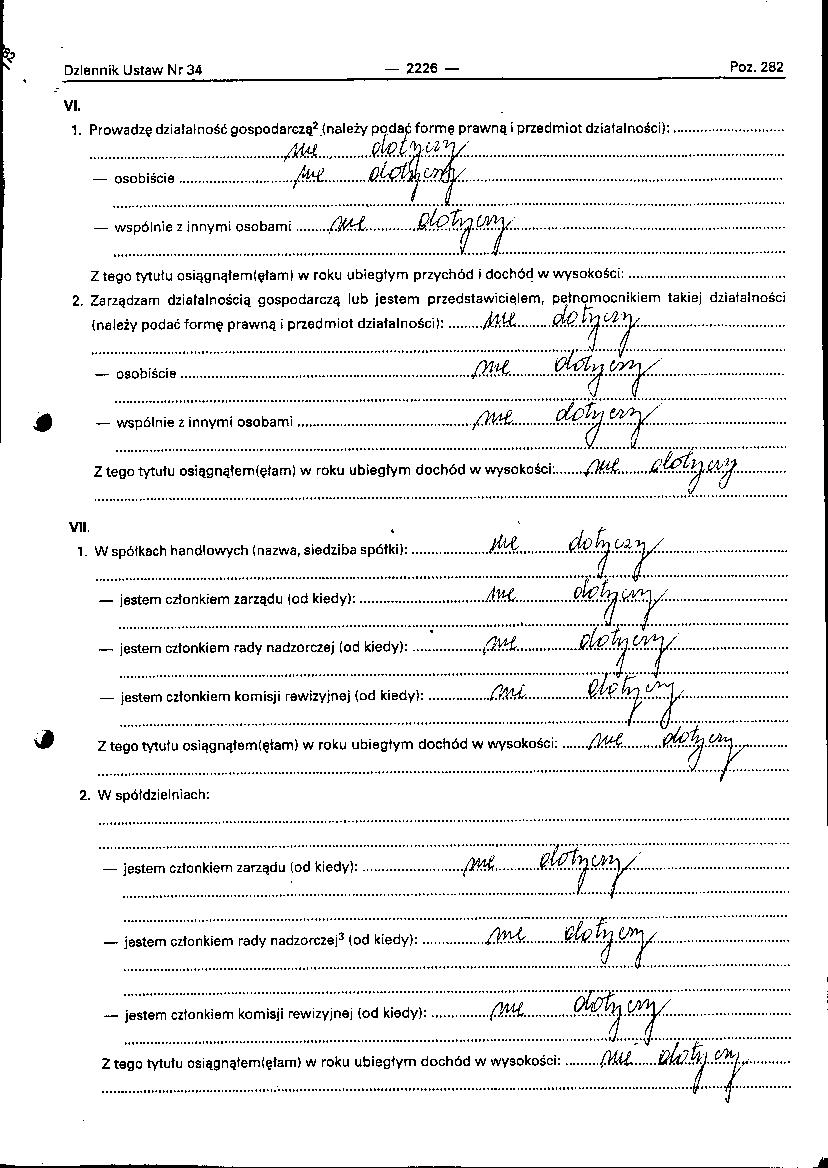 Dziennik Ustaw Nr 34 — 2226 — Poz. 282
VI.
1. Prowadzę działalność gospodarczą² (należy podać formę prawną i przedmiot działalności): 
nie dotyczy
— osobiście nie dotyczy
— wspólnie z innymi osobami nie dotyczy
Z tego tytułu osiągnąłem(ęłam) w roku ubiegłym przychód i dochód w wysokości:
2. Zarządzam działalnością gospodarczą lub jestem przedstawicielem, pełnomocnikiem takiej działalności
(należy podać formę prawną i przedmiot działalności): nie dotyczy
— osobiście nie dotyczy
— wspólnie z innymi osobami nie dotyczy
Z tego tytułu osiągnąłem(ęłam) w roku ubiegłym dochód w wysokości: nie dotyczy
VII.
1. W spółkach handlowych (nazwa, siedziba spółki): nie dotyczy
— jestem członkiem zarządu (od kiedy): nie dotyczy
— jestem członkiem rady nadzorczej (od kiedy): nie dotyczy
— jestem członkiem komisji rewizyjnej (od kiedy): nie dotyczy
Z tego tytułu osiągnąłem(ęłam) w roku ubiegłym dochód w wysokości: nie dotyczy
2. W spółdzielniach:
— jestem członkiem zarządu (od kiedy): nie dotyczy
— jestem członkiem rady nadzorczej³ (od kiedy): nie dotyczy
— jestem członkiem komisji rewizyjnej (od kiedy): nie dotyczy
Z tego tytułu osiągnąłem(ęłam) w roku ubiegłym dochód w wysokości: nie dotyczy